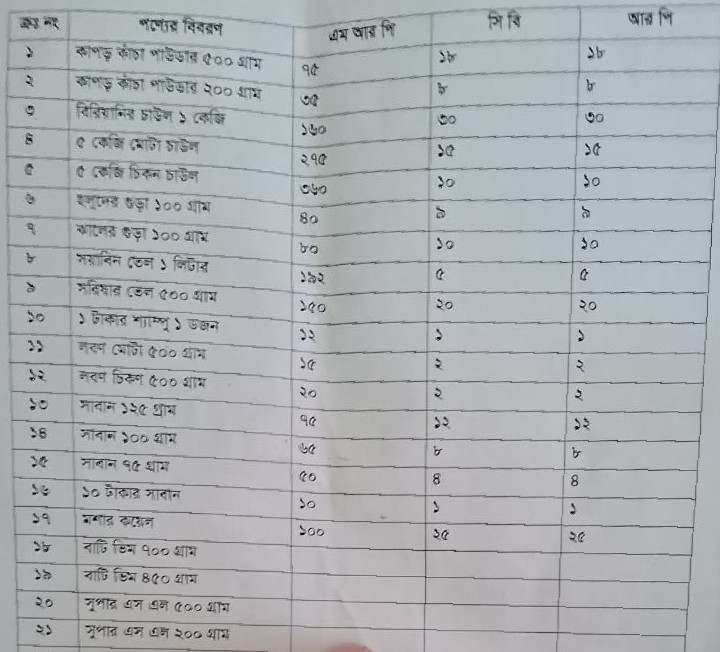 ক্রঃ নং পণ্যের বিবরন এম আর পি সি বি আর পি
১ কাপড় কাঁচা পাউডার ৫০০ গ্রাম ৭৫ ১৮ ১৮
২ কাপড় কাঁচা পাউডার ২০০ গ্রাম ৩৫ ৮ ৮
৩ বিরিয়ানির চাউল ১ কেজি ১৬০ ৩০ ৩০
৪ ৫ কেজি মোটা চাউল ২৭৫ ১৫ ১৫
৫ ৫ কেজি চিকন চাউল ৩৬০ ১০ ১০
৬ হলুদের গুড়া ১০০ গ্রাম ৪০ ৯ ৯
৭ ঝালের গুড়া ১০০ গ্রাম ৮০ ১০ ১০
৮ সয়াবিন তেল ১ লিটার ১৯২ ৫ ৫
৯ সরিষার তেল ৫০০ গ্রাম ১৫০ ২০ ২০
১০ ১ টাকার শ্যাম্পু ১ ডজন ১২ ১ ১
১১ লবণ মোটা ৫০০ গ্রাম ১৫ ২ ২
১২ লবণ চিকণ ৫০০ গ্রাম ২০ ২ ২
১৩ সাবান ১২৫ গ্রাম ৭৫ ১২ ১২
১৪ সাবান ১০০ গ্রাম ৬৫ ৮ ৮
১৫ সাবান ৭৫ গ্রাম ৫০ ৪ ৪
১৬ ১০ টাকার সাবান ১০ ১ ১
১৭ মশার কয়েল ১০০ ২৫ ২৫
১৮ বাটি ভিম ৭০০ গ্রাম
১৯ বাটি ভিম ৪৫০ গ্রাম
২০ সুপার এস এল ৫০০ গ্রাম
২১ সুপার এস এল ২০০ গ্রাম